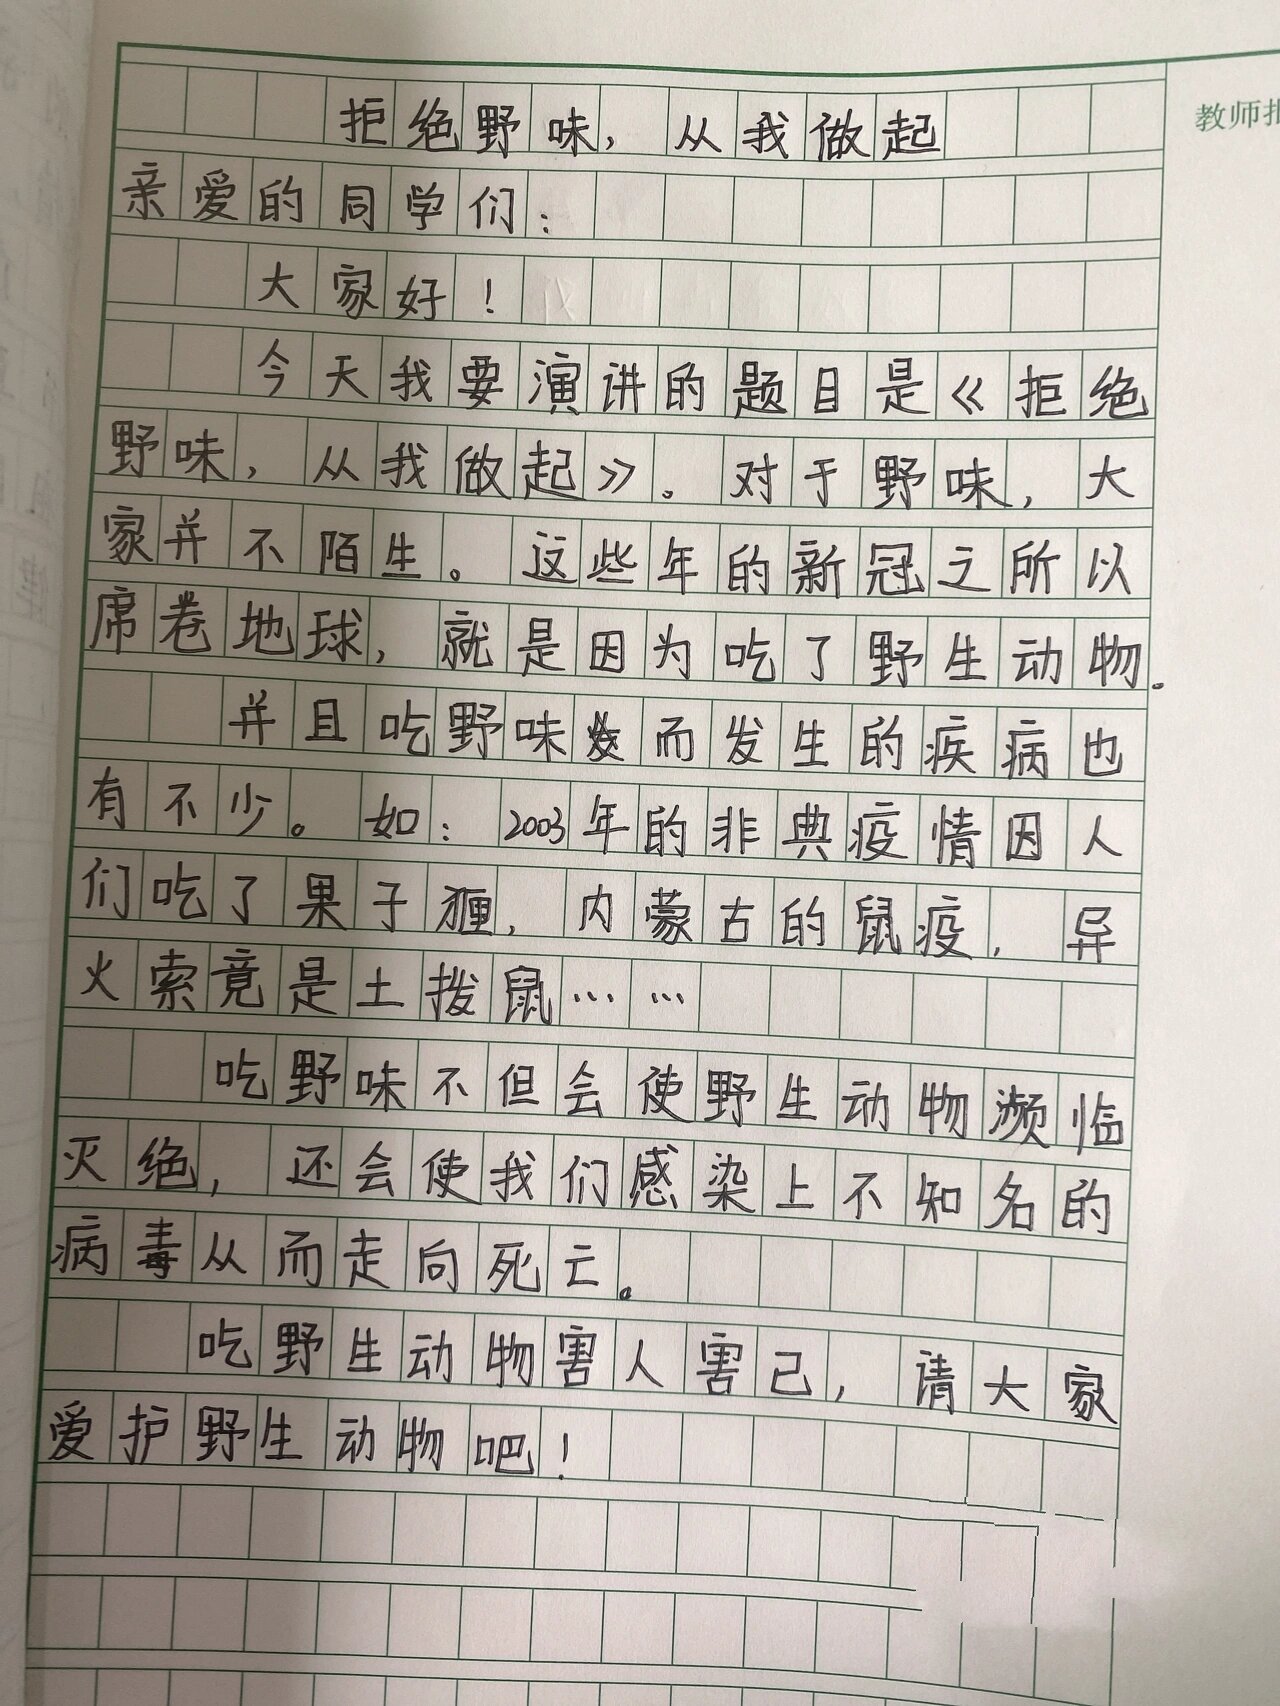 教师
拒绝野味，从我做起
亲爱的同学们：
大家好！
今天我要演讲的题目是《拒绝
野味，从我做起》。对于野味，大
家并不陌生。这些年的新冠之所以
席卷地球，就是因为吃了野生动物.
并且吃野味而发生的疾病也
有不少。如：2003年的非典疫情因人
们吃了果子狸，内蒙古的鼠疫，异
火索竟是土拨鼠……
吃野味不但会使野生动物濒临
灭绝，还会使我们感染上不知名的
病毒从而走向死亡。
吃野生动物害人害己，请大家
爱护野生动物吧！